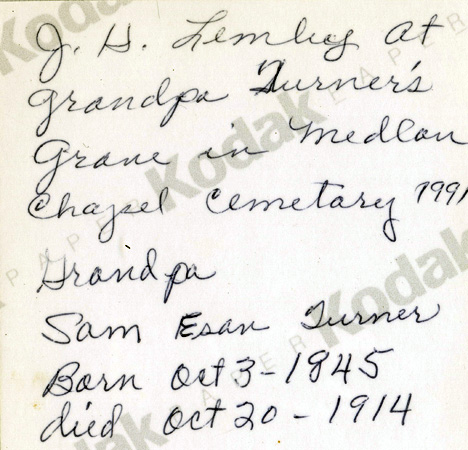 J. H. Lemley at
Grandpa Turner's
Grave in Medlan
Chapel Cemetary 1991
Grandpa
Sam Esan Turner
Born Oct 3 - 1845
died Oct 20 - 1914
Kodak
PAPER
Kodak
PAPER
Kodak
PAPER
Kodak